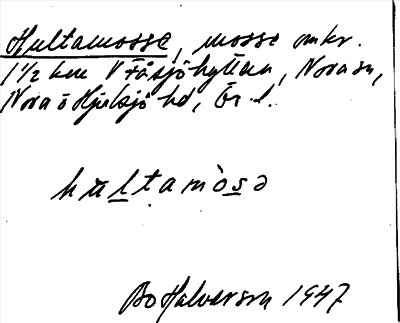 Hultamosse, mosse omkr.
1 1/2 km V Fåsjöhyttan, Nora sn,
Nora o Hjulsjö hd, Ör. l.
hultamòsə
Bo Halverson 1947